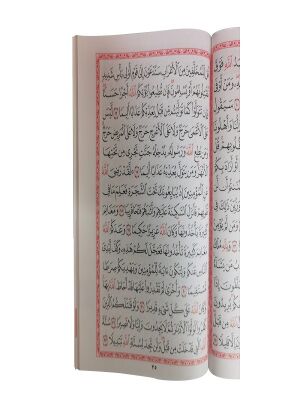 قُل لِّلْمُخَلَّفِينَ مِنَ ٱلْأَعْرَابِ سَتُدْعَوْنَ إِلَىٰ قَوْمٍ أُو۟لِى بَأْسٍ شَدِيدٍ
تُقَٰتِلُونَهُمْ أَوْ يُسْلِمُونَ فَإِن تُطِيعُوا۟ يُؤْتِكُمُ ٱللَّهُ أَجْرًا حَسَنًا
وَإِن تَتَوَلَّوْا۟ كَمَا تَوَلَّيْتُم مِّن قَبْلُ يُعَذِّبْكُمْ عَذَابًا أَلِيمًا ۝ لَّيْسَ
عَلَى ٱلْأَعْمَىٰ حَرَجٌ وَلَا عَلَى ٱلْأَعْرَجِ حَرَجٌ وَلَا عَلَى ٱلْمَرِيضِ حَرَجٌ
وَمَن يُطِعِ ٱللَّهَ وَرَسُولَهُۥ يُدْخِلْهُ جَنَّٰتٍ تَجْرِى مِن تَحْتِهَا
ٱلْأَنْهَٰرُ وَمَن يَتَوَلَّ يُعَذِّبْهُ عَذَابًا أَلِيمًا ۝ لَّقَدْ رَضِىَ ٱللَّهُ
عَنِ ٱلْمُؤْمِنِينَ إِذْ يُبَايِعُونَكَ تَحْتَ ٱلشَّجَرَةِ فَعَلِمَ مَا فِى
قُلُوبِهِمْ فَأَنزَلَ ٱلسَّكِينَةَ عَلَيْهِمْ وَأَثَٰبَهُمْ فَتْحًا قَرِيبًا ۝ وَمَغَانِمَ
كَثِيرَةً يَأْخُذُونَهَا وَكَانَ ٱللَّهُ عَزِيزًا حَكِيمًا ۝ وَعَدَكُمُ ٱللَّهُ
مَغَانِمَ كَثِيرَةً تَأْخُذُونَهَا فَعَجَّلَ لَكُمْ هَٰذِهِۦ وَكَفَّ أَيْدِىَ
ٱلنَّاسِ عَنكُمْ وَلِتَكُونَ ءَايَةً لِّلْمُؤْمِنِينَ وَيَهْدِيَكُمْ صِرَٰطًا
مُّسْتَقِيمًا ۝ وَأُخْرَىٰ لَمْ تَقْدِرُوا۟ عَلَيْهَا قَدْ أَحَاطَ ٱللَّهُ
بِهَا وَكَانَ ٱللَّهُ عَلَىٰ كُلِّ شَىْءٍ قَدِيرًا ۝ وَلَوْ قَٰتَلَكُمُ ٱلَّذِينَ
كَفَرُوا۟ لَوَلَّوُا۟ ٱلْأَدْبَٰرَ ثُمَّ لَا يَجِدُونَ وَلِيًّا وَلَا نَصِيرًا ۝ سُنَّةَ
ٱللَّهِ ٱلَّتِى قَدْ خَلَتْ مِن قَبْلُ وَلَن تَجِدَ لِسُنَّةِ ٱللَّهِ تَبْدِيلًا ۝
٢٥